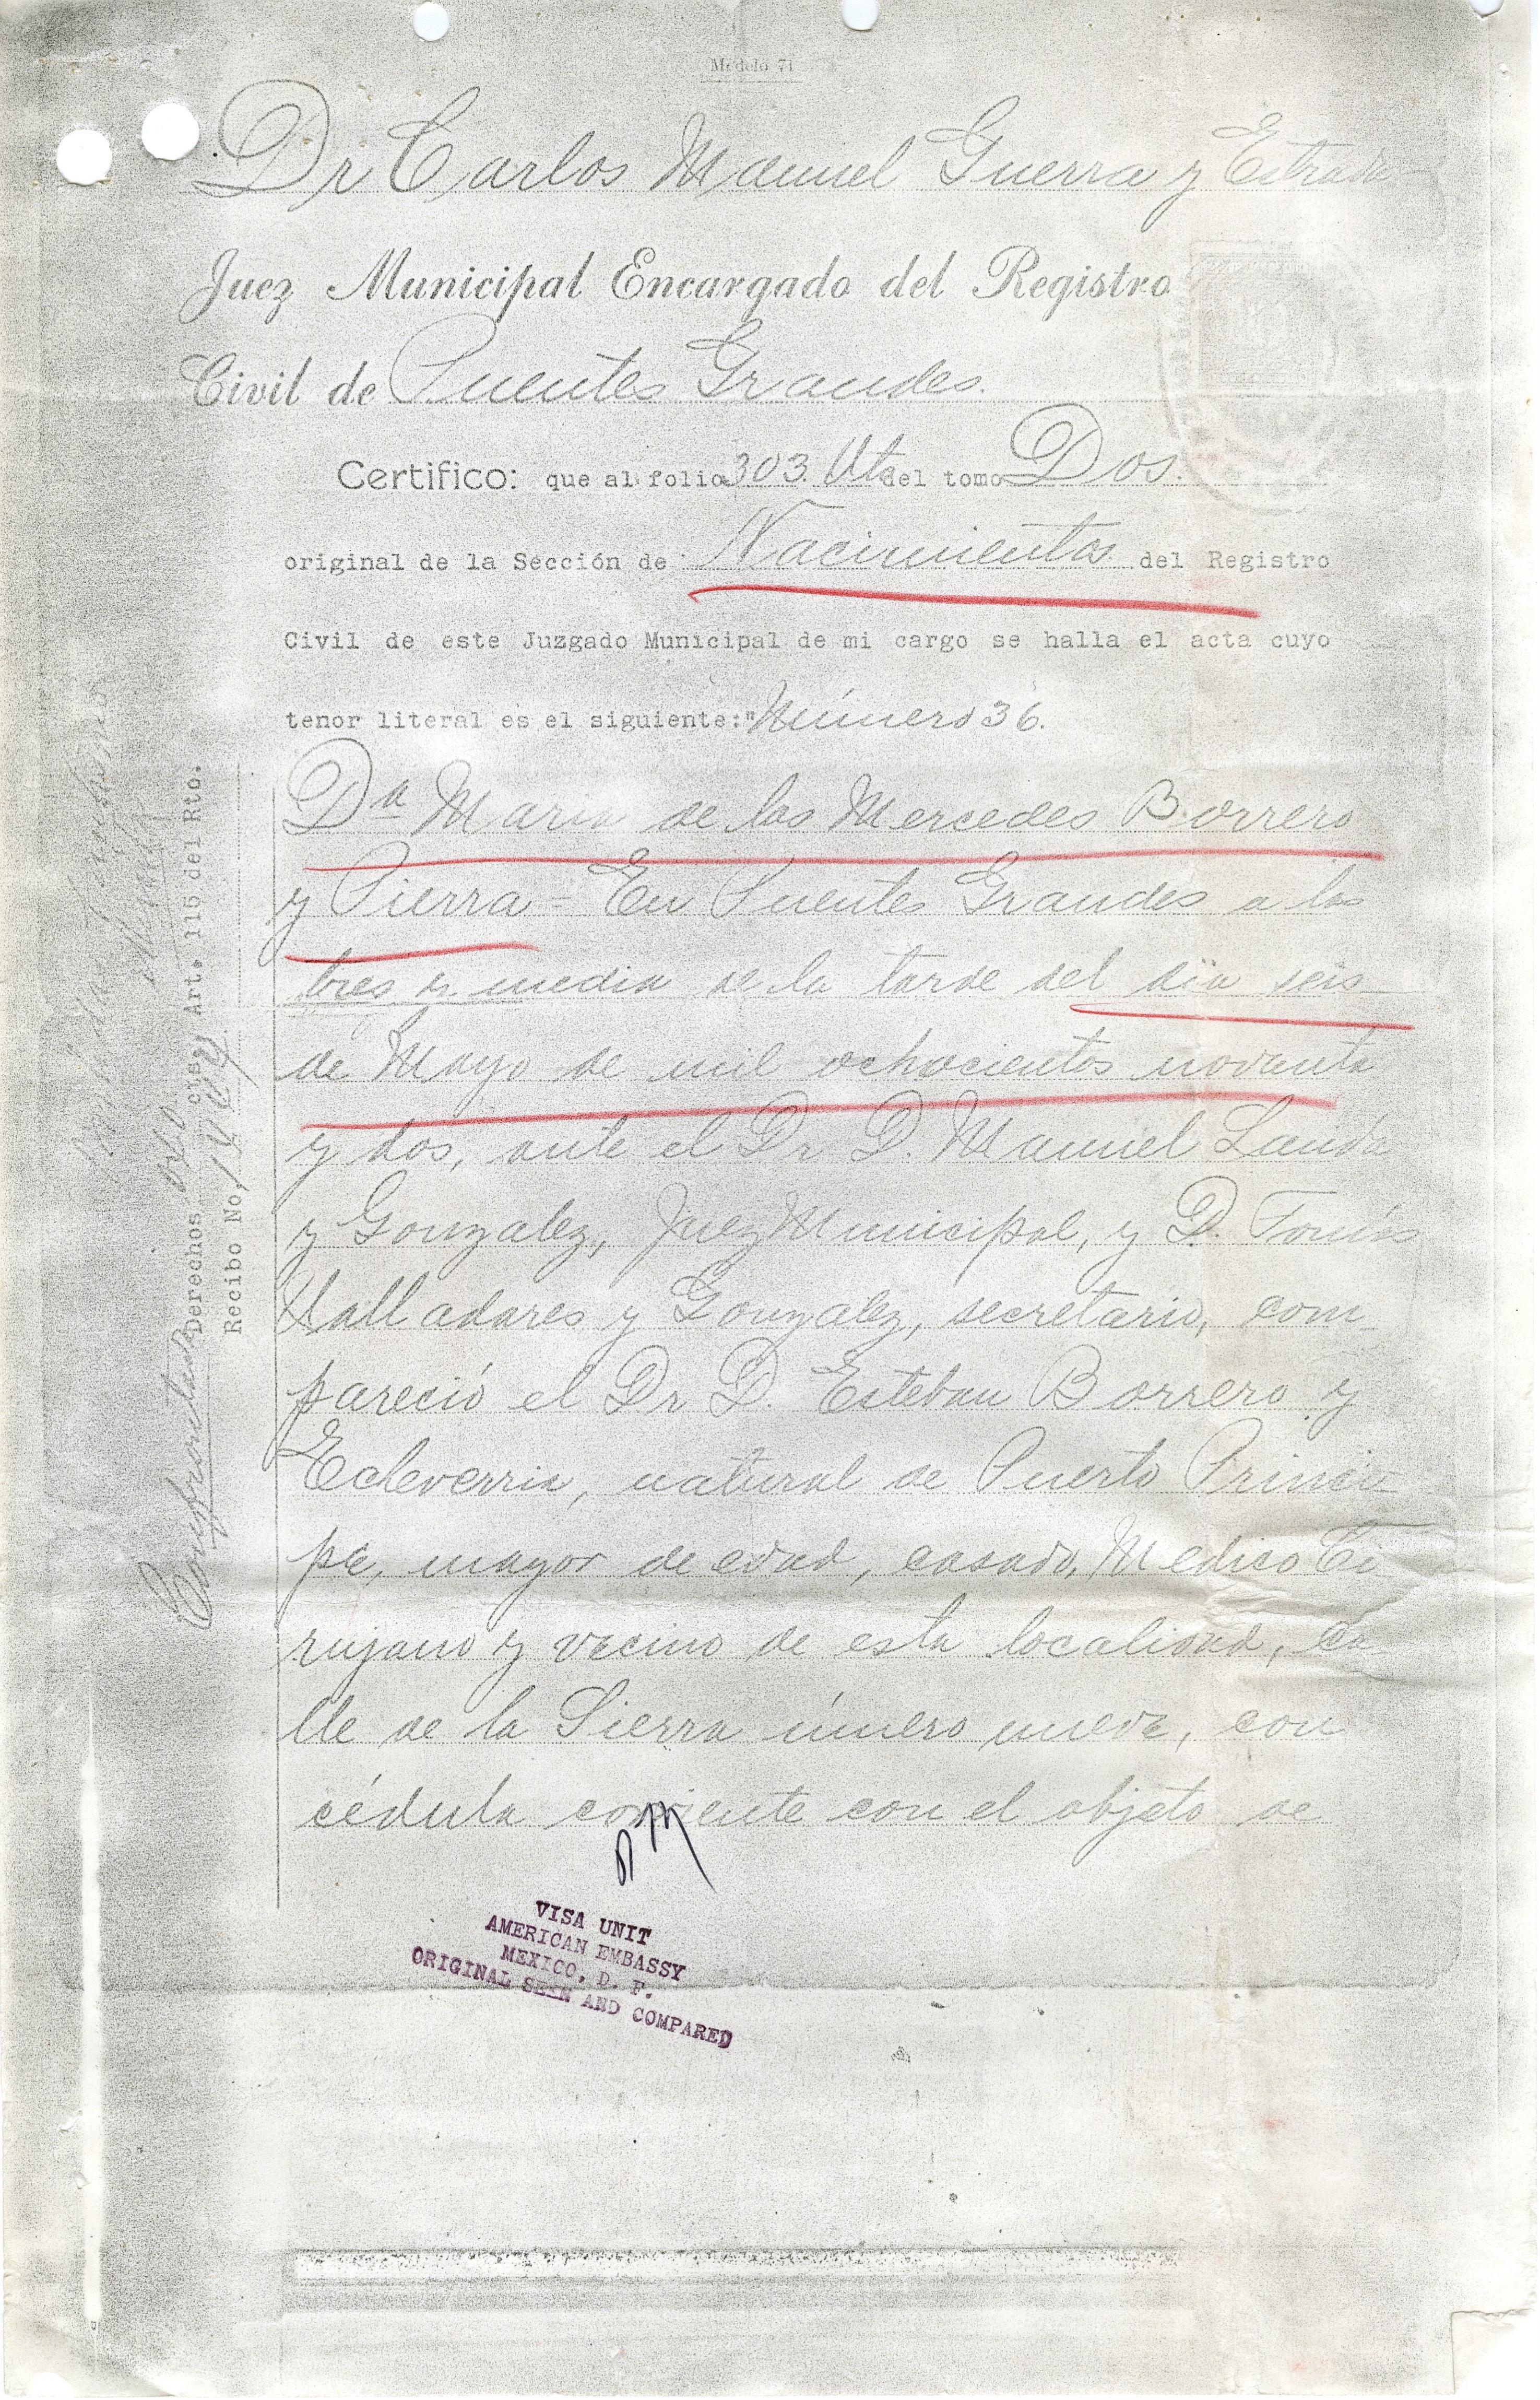 Modelo 71
Dr Carlos Manuel Guerra y Estrada
Juez Municipal Encargado del Registro
Civil de Puentes Grandes.
Certifico: que al folio 303 Vto del tomo Dos.
original de la Sección de Nacimientos del Registro
Civil de este Juzgado Municipal de mi cargo se halla el acta cuyo
tenor literal es el siguiente:"Número 36.
Da Maria de las Mercedes Borrero
y Pierra = En Puentes Grandes a las
tres y media de la tarde del dia seis
de Mayo de mil ochocientos noventa
y dos, ante el Dr D. Manuel Landa
y Gonzalez, Juez Municipal, y D. Tomás
Valladares y Gonzalez, secretario, com-
pareció el Dr D. Esteban Borrero y
Echeverria, natural de Puerto Princi-
pe, mayor de edad, casado, Medico Ci
rujano y vecino de esta localidad, ca-
lle de la Sierra número nueve, con
cédula corriente con el objeto de
Confrontada
Derechos cts. Art. 115 del Rto.
Recibo No.
VISA UNIT
AMERICAN EMBASSY
MEXICO, D. F.
ORIGINAL SEEN AND COMPARED